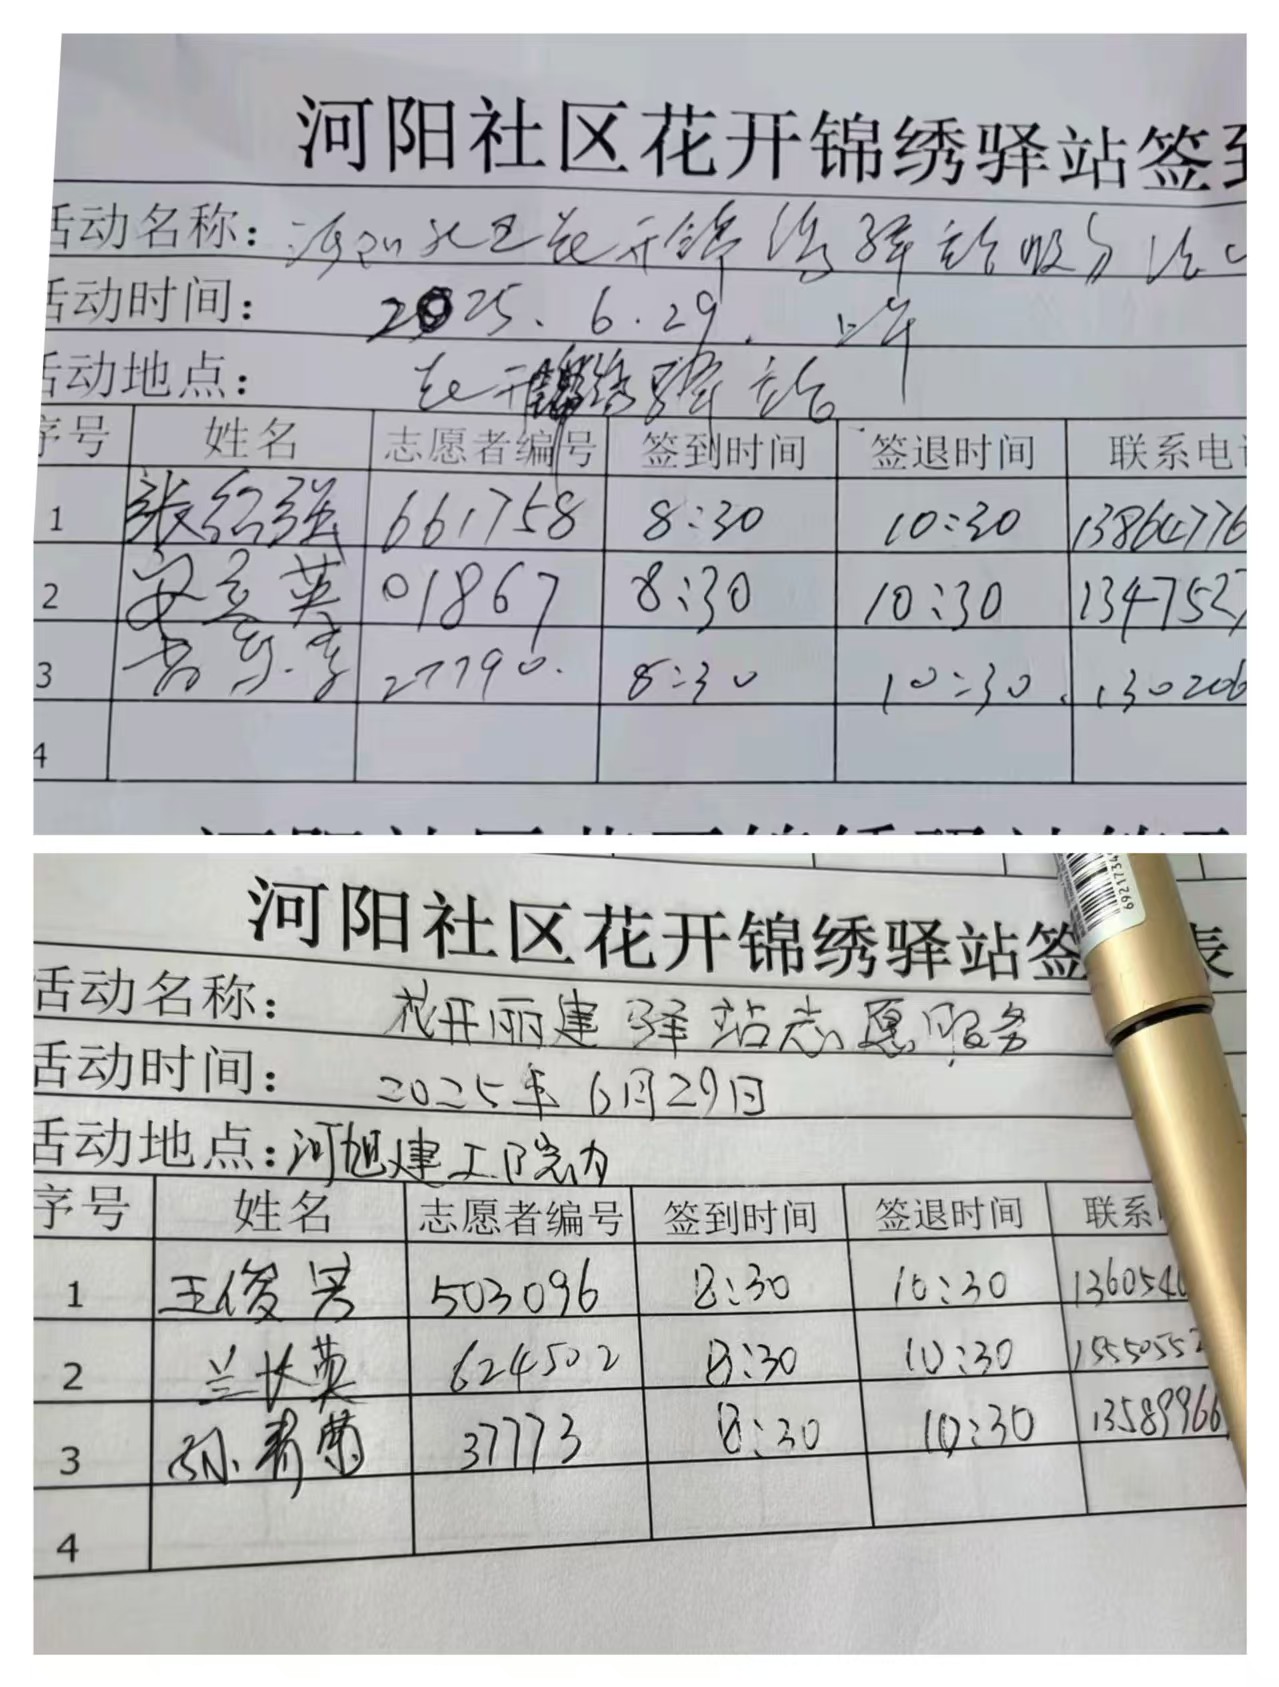 河阳社区花开锦绣驿站签到
活动名称：河阳社区花开锦绣驿站服务活
活动时间：2025.6.29.上午
活动地点：花开锦绣驿站
序号 姓名 志愿者编号 签到时间 签退时间 联系电话
1 张绍强 661758 8:30 10:30 13864776
2 安立英 01867 8:30 10:30 1347527
3 27790. 8:30 10:30. 130206
4
河阳社区花开锦绣驿站签到
河阳社区花开锦绣驿站签 表
活动名称：花开丽建驿站志愿服务
活动时间：2025年6月29日
活动地点：河旭建工院内
序号 姓名 志愿者编号 签到时间 签退时间 联系
1 王俊 503096 8:30 10:30 1360540
2 兰长英 624502 8:30 10:30 15550552
3 孙秀菊 37773 8:30 10:30 13589966
4
692173